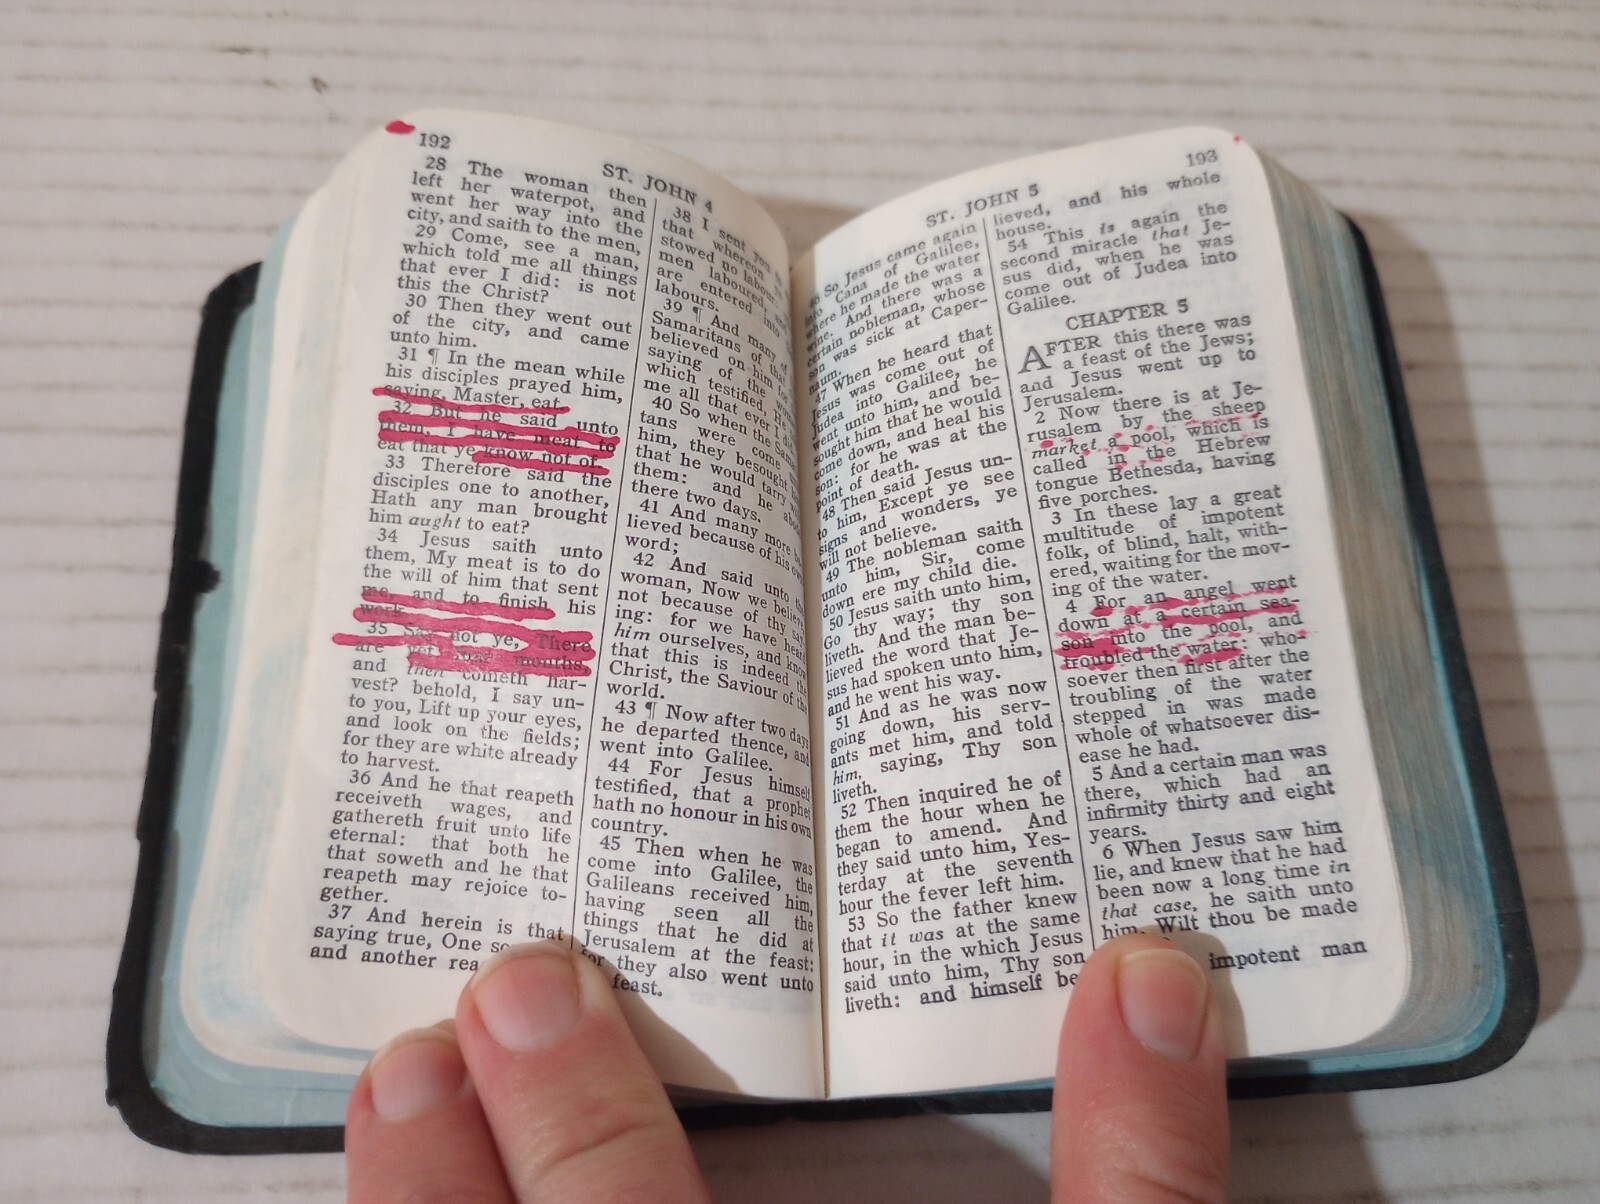 192
ST. JOHN 4
28 The woman then
left her waterpot, and
went her way into the
city, and saith to the men,
29 Come, see a man,
which told me all things
that ever I did: is not
this the Christ?
30 Then they went out
of the city, and came
unto him.
31 ¶ In the mean while
his disciples prayed him,
saying, Master, eat.
32 But he said unto
them, I have meat to
eat that ye know not of.
33 Therefore said the
disciples one to another,
Hath any man brought
him aught to eat?
34 Jesus saith unto
them, My meat is to do
the will of him that sent
me, and to finish his
work.
35 Say not ye, There
are yet four months,
and then cometh har-
vest? behold, I say un-
to you, Lift up your eyes,
and look on the fields;
for they are white already
to harvest.
36 And he that reapeth
receiveth wages, and
gathereth fruit unto life
eternal: that both he
that soweth and he that
reapeth may rejoice to-
gether.
37 And herein is that
saying true, One
and another
38 I sent you
that whereon
stowed no labour:
men laboured, and
are entered into
labours.
39 ¶ And many of
Samaritans of that
believed on him for
saying of the
which testified, He
me all that ever I did.
40 So when the
tans were come
him, they besought
that he would tarry
them: and he
there two days.
41 And many more be-
lieved because of his own
word;
42 And said unto the
woman, Now we believe,
not because of thy say-
ing: for we have heard
him ourselves, and know
that this is indeed the
Christ, the Saviour of the
world.
43 ¶ Now after two days
he departed thence, and
went into Galilee.
44 For Jesus himself
testified, that a prophet
hath no honour in his own
country.
45 Then when he was
come into Galilee, the
Galileans received him,
having seen all the
things that he did at
Jerusalem at the feast:
for they also went unto
feast.
ST. JOHN 5
193
46 So Jesus came again
into Cana of Galilee,
where he made the water
wine. And there was a
certain nobleman, whose
son was sick at Caper-
naum.
47 When he heard that
Jesus was come out of
Judea into Galilee, he
went unto him, and be-
sought him that he would
come down, and heal his
son: for he was at the
point of death.
48 Then said Jesus un-
to him, Except ye see
signs and wonders, ye
will not believe.
49 The nobleman saith
unto him, Sir, come
down ere my child die.
50 Jesus saith unto him,
Go thy way; thy son
liveth. And the man be-
lieved the word that Je-
sus had spoken unto him,
and he went his way.
51 And as he was now
going down, his serv-
ants met him, and told
him, saying, Thy son
liveth.
52 Then inquired he of
them the hour when he
began to amend. And
they said unto him, Yes-
terday at the seventh
hour the fever left him.
53 So the father knew
that it was at the same
hour, in the which Jesus
said unto him, Thy son
liveth: and himself be
lieved, and his whole
house.
54 This is again the
second miracle that Je-
sus did, when he was
come out of Judea into
Galilee.
CHAPTER 5
AFTER this there was
a feast of the Jews;
and Jesus went up to
Jerusalem.
2 Now there is at Je-
rusalem by the sheep
market a pool, which is
called in the Hebrew
tongue Bethesda, having
five porches.
3 In these lay a great
multitude of impotent
folk, of blind, halt, with-
ered, waiting for the mov-
ing of the water.
4 For an angel went
down at a certain sea-
son into the pool, and
troubled the water: who-
soever then first after the
troubling of the water
stepped in was made
whole of whatsoever dis-
ease he had.
5 And a certain man was
there, which had an
infirmity thirty and eight
years.
6 When Jesus saw him
lie, and knew that he had
been now a long time in
that case, he saith unto
him, Wilt thou be made
impotent man